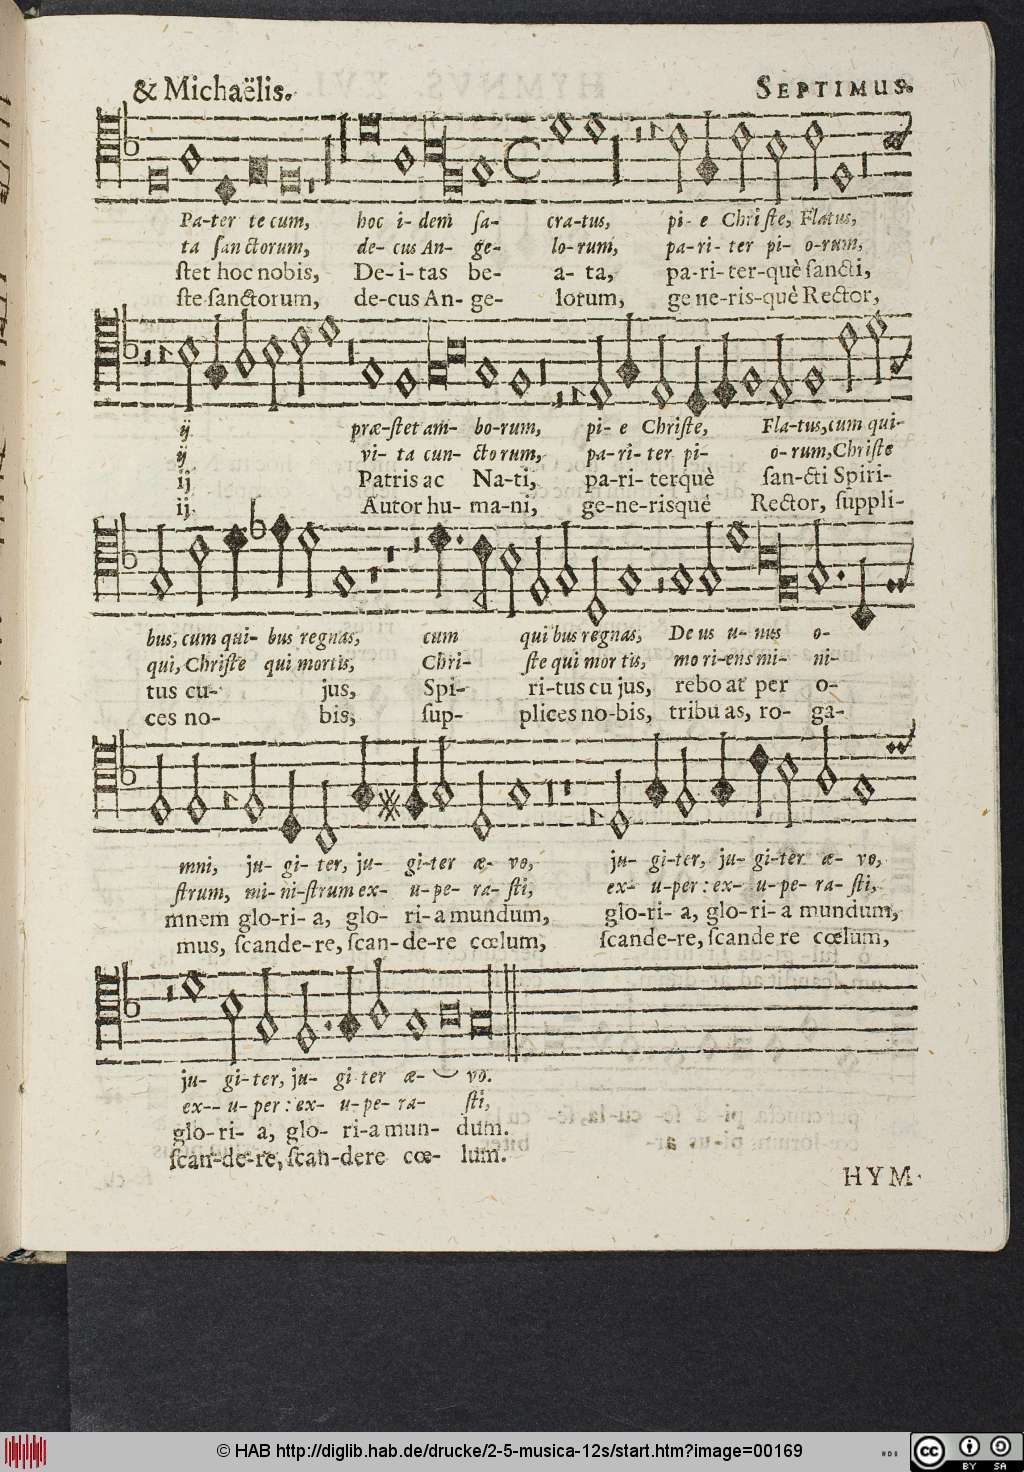 & Michaëlis. SEPTIMUS.
Pa-ter te cum, hoc i-dem sa- cra-tus, pi-e Chri ſte, Flatus,
ta ſan ctorum, de-cus An-ge- lo-rum, pa-ri-ter pi-o-rum,
ſtet hoc nobis, De-i-tas be- a-ta, pa-ri-ter-què ſancti,
ſte ſanctorum, de-cus An-ge- lorum, ge ne-ris-què Rector,
ij præ-ſtet am-bo-rum, pi-e Chriſte, Fla-tus, cum qui-
ij vi-ta cun-cto rum, pa-ri-ter pi- o-rum, Chriſte
ij Patris ac Na-ti, pa-ri-terquè ſan-cti Spiri-
ij. Autor hu-ma-ni, ge-ne-risquè Rector, ſuppli-
bus, cum qui-bus regnas, cum qui bus regnas, De us u-nus o-
qui, Chriſte qui mortis, Chri- ſte qui mor tis, mo ri-ens mi-ni-
tus cu- jus, Spi- ri-tus cu jus, rebo at per o-
ces no- bis, ſup- plices no-bis, tribu as, ro-ga-
mni, ju-gi-ter, ju-gi-ter æ-vo, ju-gi-ter, ju-gi-ter æ-vo,
ſtrum, mi-ni-ſtrum ex-u-pe-ra-ſti, ex-u-per: ex-u-pe-ra-ſti,
mnem glo-ri-a, glo-ri-a mundum, glo-ri-a, glo-ri-a mundum,
mus, ſcande-re, ſcan-de-re cœlum, ſcande-re, ſcande re cœlum,
ju-gi-ter, ju-gi ter æ-vo.
ex-- u-per: ex-u-pe-ra-ſti,
glo-ri-a, glo-ri-a mun-dum.
ſcan-de-re, ſcan-dere cœ-lum.
HYM-
© HAB http://diglib.hab.de/drucke/2-5-musica-12s/start.htm?image=00169
cc BY SA